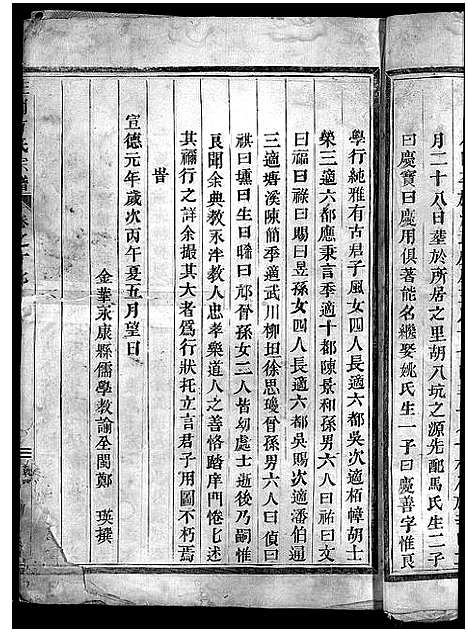 月二十八日塟於所居之里胡八坑之源先配馬氏生二子
曰慶寶曰慶用俱著能名繼娶姚氏生一子曰慶善字惟良
學行純雅有古君子風女四人長適六都吳次適栢幛胡士
榮三適六都應秉言季適十都陳景和孫男六人曰祐曰文
曰福曰祿曰賜曰昱孫女四人長適六都吳賜次適潘伯通
三適塘溪陳簡季適武川柳坦徐思瓊晉孫男六人曰偵曰
祺曰壎曰生曰疇曰邡晉孫女二人皆幼處士逝後乃嗣惟
良聞余典教永泮教人忠孝樂道人之善恪踏庠門惓匕述
其禰行之詳余撮其大者爲行狀托立言君子用圖不朽焉
旹
宣德元年歲次丙午夏五月望日
金華永康縣儒學教諭至閩鄭 瑛撰